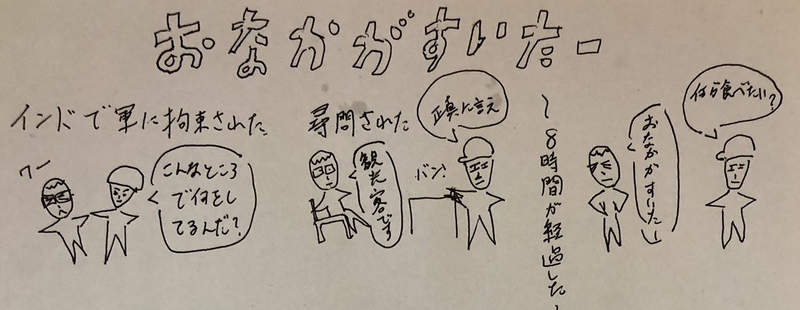 おなかがすいたー
インドで軍に拘束された
ワー
こんなところ
で何をし
てるんだ?
尋問された
観光客です
バン!
正直に言え
~8時間が経過した~
おなかがすいたし
何が食べたい?